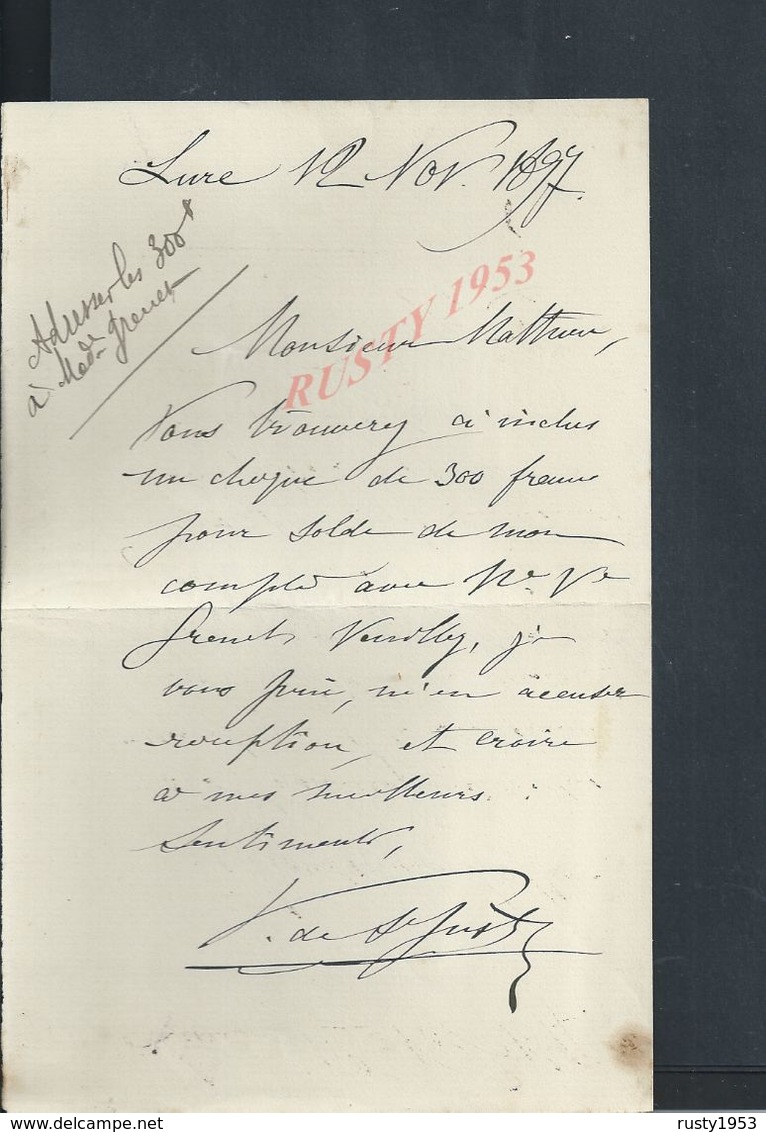 Lure 12 Nov. 1897.
Adresser les 300 f
à Made Grenet
Monsieur Mathieu,
RUSTY 1953
Vous trouverez ci inclus
un cheque de 300 francs
pour solde de mon
compte avec Me Ve
Grenet Veuillez, je
vous prie, m'en accuser
reception, et croire
à mes meilleurs
sentiments,
V. de St Just
delcampe.net
rusty1953